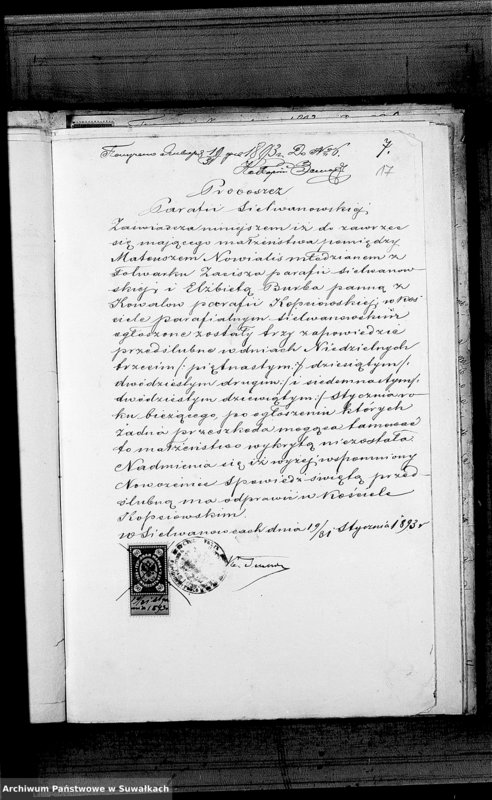 19 1893 г. До №26.
7.
17
Proboszcz
Parafii Sielwanowskiej,
Zaświadcza niniejszem iż do zawrzec
się mającego małżeństwa pomiędzy
Mateuszem Nowialis młodzianem z
Folwarku Zacisza parafii Sielwanow-
skiej i Elżbietą Burba panną z
Kowalow parafii Kopciowskiej, w Koś
ciele parafialnym Sielwanowskim
ogłoszone zostały trzy zapowiedzie
przedślubne w dniach Niedzielnych
trzecim /: piętnastym:/ dziesiątym /:
dwódziestym drugim:/ i siedemnastym/:
dwódziestym dziewiątym:/ Stycznia ro-
ku bieżącego, po ogłoszeniu których
żadna przeszkoda mogąca tamować
to małżeństwo wykrytą niezostała.
Nadmienia się iż wyżej wspomniony
Nowożeniec Spowiedź świętą przed-
ślubną ma odprawić w Kościele
Kopciowskim.
w Sielwanowcach dnia 19/31 Stycznia 1893 r
Archiwum Państwowe w Suwałkach